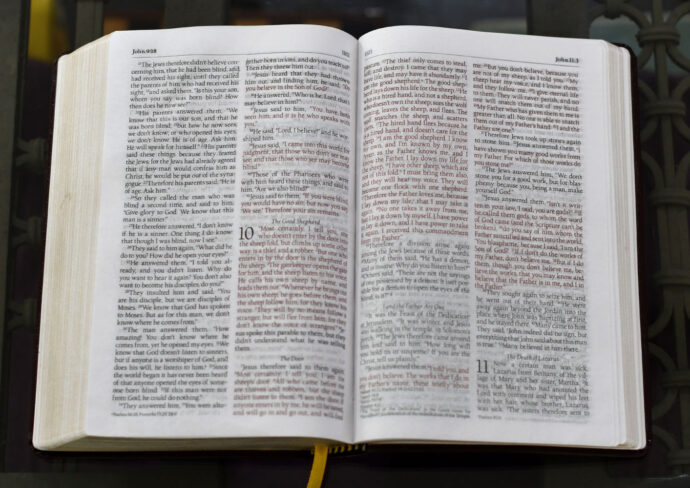 John 9:18
18 The Jews therefore didn't believe con-
cerning him, that he had been blind, and
had received his sight, until they called
the parents of him who had received his
sight, 19 and asked them, "Is this your son,
whom you say was born blind? How
then does he now see?"
20 His parents answered them, "We
know that this is our son, and that he
was born blind; 21 but how he now sees,
we don't know; or who opened his eyes,
we don't know. He is of age. Ask him.
He will speak for himself." 22 His parents
said these things because they feared
the Jews; for the Jews had already agreed
that if any man would confess him as
Christ, he would be put out of the syna-
gogue. 23 Therefore his parents said, "He is
of age. Ask him."
24 So they called the man who was
blind a second time, and said to him,
"Give glory to God. We know that this
man is a sinner."
25 He therefore answered, "I don't know
if he is a sinner. One thing I do know:
that though I was blind, now I see."
26 They said to him again, "What did he
do to you? How did he open your eyes?"
27 He answered them, "I told you al-
ready, and you didn't listen. Why do
you want to hear it again? You don't also
want to become his disciples, do you?"
28 They insulted him and said, "You
are his disciple, but we are disciples of
Moses. 29 We know that God has spoken
to Moses. But as for this man, we don't
know where he comes from."
30 The man answered them, "How
amazing! You don't know where he
comes from, yet he opened my eyes. 31 We
know that God doesn't listen to sinners,
but if anyone is a worshiper of God, and
does his will, he listens to him. 32 Since
the world began it has never been heard
of that anyone opened the eyes of some-
one born blind. 33 If this man were not
from God, he could do nothing."
34 They answered him, "You were alto-
gether born in sins, and do you teach us?"
Then they threw him out.
35 Jesus heard that they had thrown
him out, and finding him, he said, "Do
you believe in the Son of God?"
36 He answered, "Who is he, Lord, that I
may believe in him?"
37 Jesus said to him, "You have both
seen him, and it is he who speaks with
you."
38 He said, "Lord, I believe!" and he wor-
shiped him.
39 Jesus said, "I came into this world for
judgment, that those who don't see may
see; and that those who see may become
blind."
40 Those of the Pharisees who were
with him heard these things, and said to
him, "Are we also blind?"
41 Jesus said to them, "If you were blind,
you would have no sin; but now you say,
'We see.' Therefore your sin remains.
The Good Shepherd
10 "Most certainly, I tell you, one
who doesn't enter by the door into
the sheep fold, but climbs up some other
way, is a thief and a robber. 2 But one who
enters in by the door is the shepherd of
the sheep. 3 The gatekeeper opens the gate
for him, and the sheep listen to his voice.
He calls his own sheep by name, and
leads them out. 4 Whenever he brings out
his own sheep, he goes before them, and
the sheep follow him, for they know his
voice. 5 They will by no means follow a
stranger, but will flee from him; for they
don't know the voice of strangers." 6 Je-
sus spoke this parable to them, but they
didn't understand what he was telling
them.
The Door
7 Jesus therefore said to them again,
"Most certainly, I tell you, I am the
sheep's door. 8 All who came before me
are thieves and robbers, but the sheep
didn't listen to them. 9 I am the door. If
anyone enters in by me, he will be saved,
and will go in and go out, and will find
pasture. 10 The thief only comes to steal,
kill, and destroy. I came that they may
have life, and may have it abundantly.
11 I am the good shepherd. The good shep-
herd lays down his life for the sheep. 12 He
who is a hired hand, and not a shepherd,
who doesn't own the sheep, sees the wolf
coming, leaves the sheep, and flees. The
wolf snatches the sheep, and scatters
them. 13 The hired hand flees because he
is a hired hand, and doesn't care for the
sheep. 14 I am the good shepherd. I know
my own, and I'm known by my own;
15 even as the Father knows me, and I
know the Father. I lay down my life for
the sheep. 16 I have other sheep, which are
not of this fold. I must bring them also,
and they will hear my voice. They will
become one flock with one shepherd.
17 Therefore the Father loves me, because
I lay down my life, that I may take it
again. 18 No one takes it away from me,
but I lay it down by myself. I have power
to lay it down, and I have power to take
it again. I received this commandment
from my Father."
19 Therefore a division arose again
among the Jews because of these words.
20 Many of them said, "He has a demon,
and is insane! Why do you listen to him?"
21 Others said, "These are not the sayings
of one possessed by a demon. It isn't pos-
sible for a demon to open the eyes of the
blind, is it?"
I and the Father Are One
22 It was the Feast of the Dedication
at Jerusalem. 23 It was winter, and Jesus
was walking in the temple, in Solomon's
porch. 24 The Jews therefore came around
him and said to him, "How long will
you hold us in suspense? If you are the
Christ, tell us plainly."
25 Jesus answered them, "I told you, and
you don't believe. The works that I do in
my Father's name, these testify about
John 11:3
me. 26 But you don't believe, because you
are not of my sheep, as I told you. 27 My
sheep hear my voice, and I know them,
and they follow me. 28 I give eternal life
to them. They will never perish, and no
one will snatch them out of my hand.
29 My Father who has given them to me is
greater than all. No one is able to snatch
them out of my Father's hand. 30 I and the
Father are one."
31 Therefore Jews took up stones again
to stone him. 32 Jesus answered them, "I
have shown you many good works from
my Father. For which of those works do
you stone me?"
33 The Jews answered him, "We don't
stone you for a good work, but for blas-
phemy: because you, being a man, make
yourself God."
34 Jesus answered them, "Isn't it writ-
ten in your law, 'I said, you are gods?' 35 If
he called them gods, to whom the word
of God came (and the Scripture can't be
broken), 36 do you say of him whom the
Father sanctified and sent into the world,
'You blaspheme,' because I said, 'I am the
Son of God?' 37 If I don't do the works of
my Father, don't believe me. 38 But if I do
them, though you don't believe me, be-
lieve the works, that you may know and
believe that the Father is in me, and I in
the Father."
39 They sought again to seize him, and
he went out of their hand. 40 He went
away again beyond the Jordan into the
place where John was baptizing at first,
and he stayed there. 41 Many came to him.
They said, "John indeed did no sign, but
everything that John said about this man
is true." 42 Many believed in him there.
The Death of Lazarus
11 Now a certain man was sick,
Lazarus from Bethany, of the vil-
lage of Mary and her sister, Martha. 2 It
was that Mary who had anointed the
Lord with ointment and wiped his feet
with her hair, whose brother, Lazarus,
was sick. 3 The sisters therefore sent to